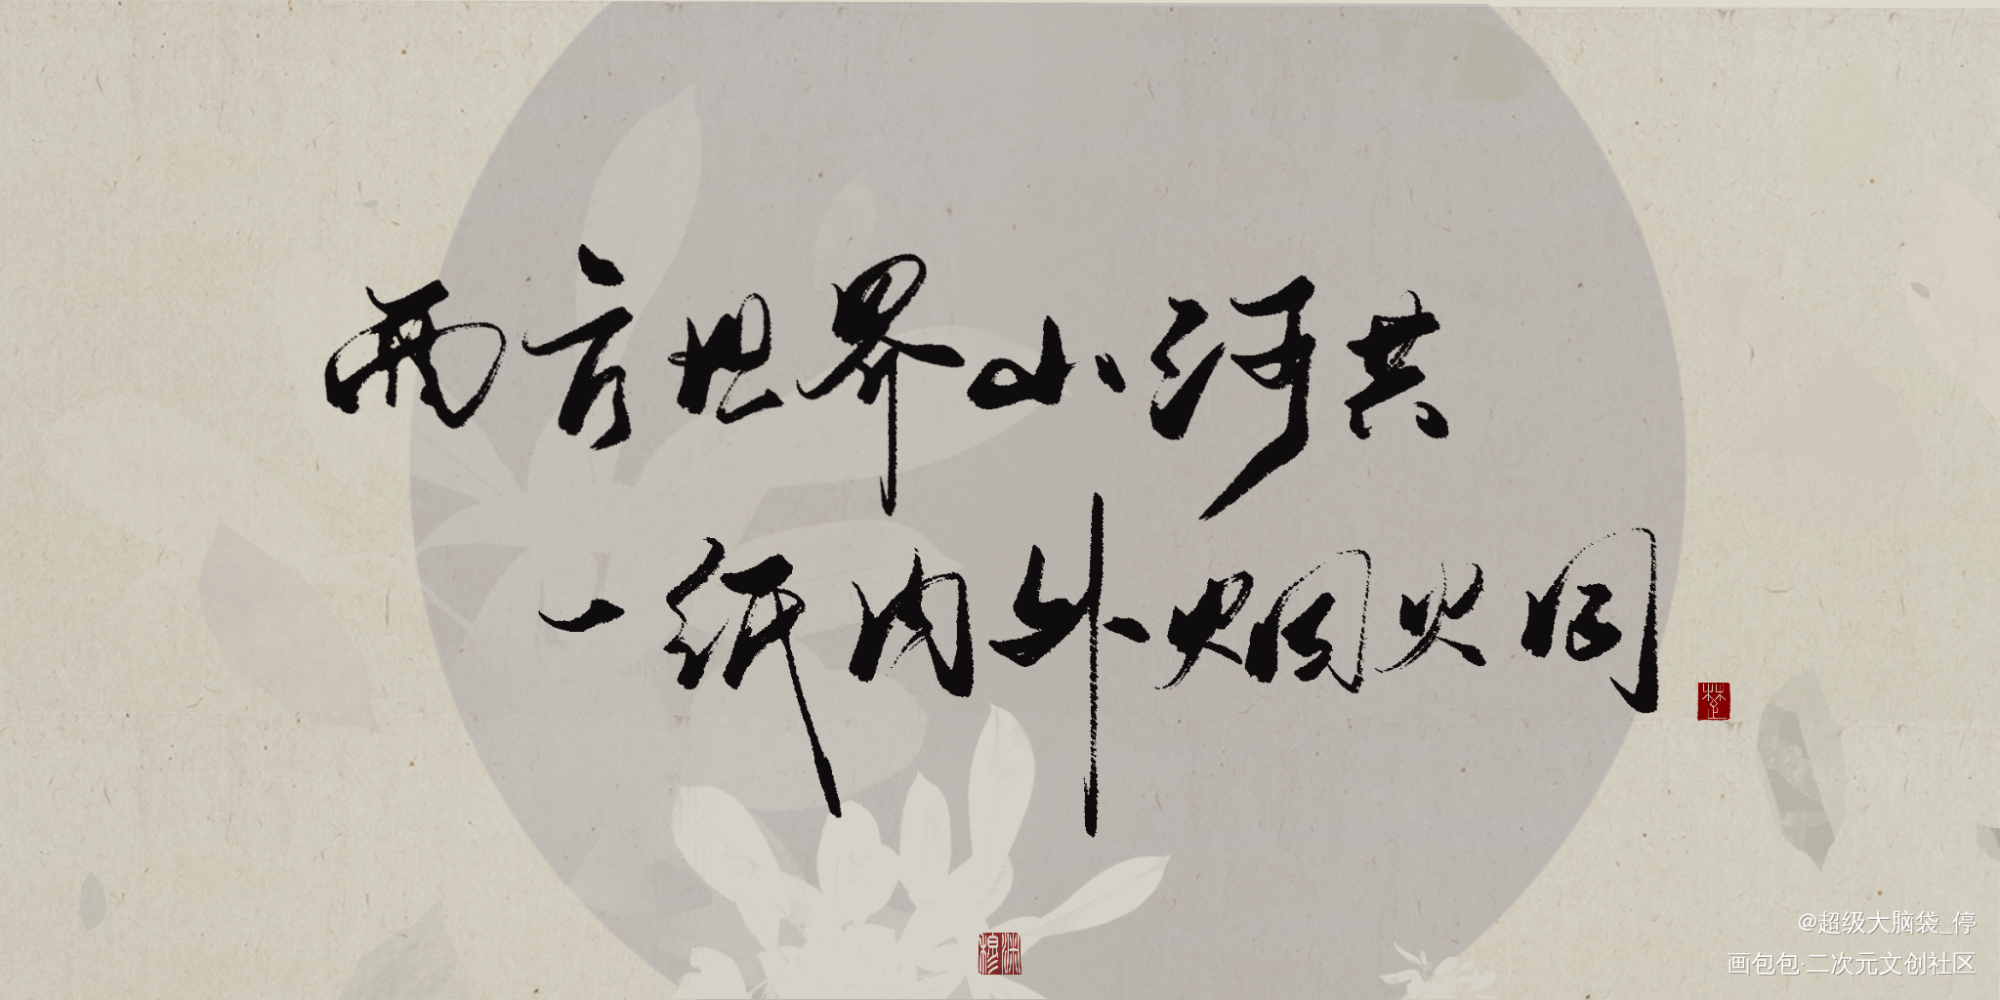 两方世界山河共
一纸内外烟火同
楚
@超级大脑袋_停
画包包·二次元文创社区